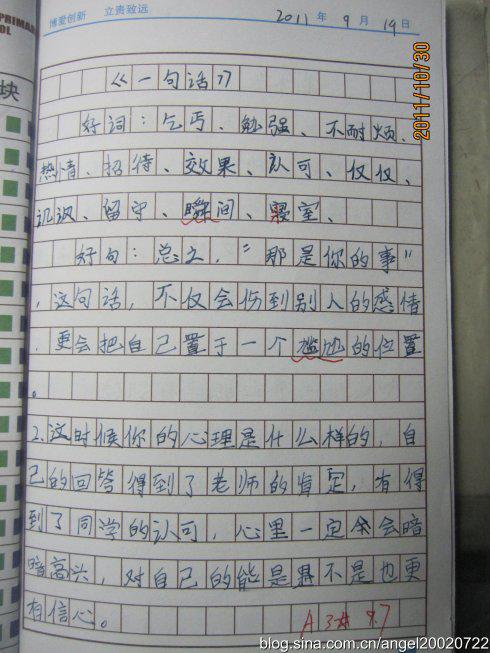 PRIMAR
OL
博爱创新 立责致远 2011 年 9 月 19 日
块
《一句话》
好词：乞丐、勉强、不耐烦、
热情、招待、效果、认可、仅仅、
讥讽、留守、瞬间、寝室、
好句：总之，“那是你的事”
，这句话，不仅会伤到别人的感情
，更会把自己置于一个尴尬的位置
。
2.这时候你的心理是什么样的，自
己的回答得到了老师的肯定，有得
到了同学的认可，心里一定会暗
暗高兴，对自己的能是不是也更
有信心。
A 3# 9.7
2011/10/30
blog.sina.com.cn/angel20020722